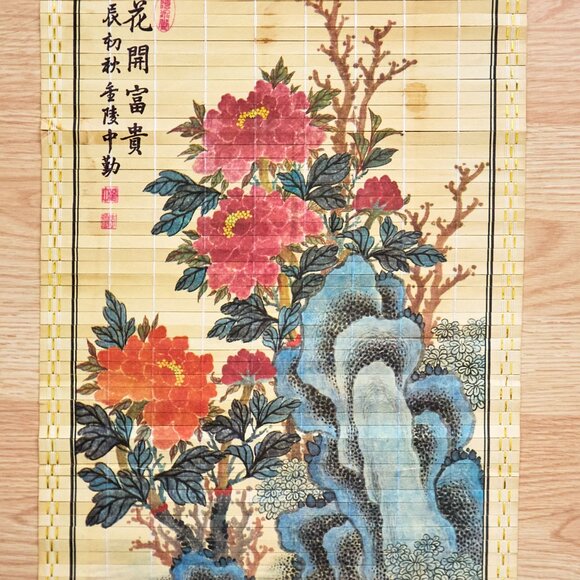 花開富貴
辰初秋金陵中勤